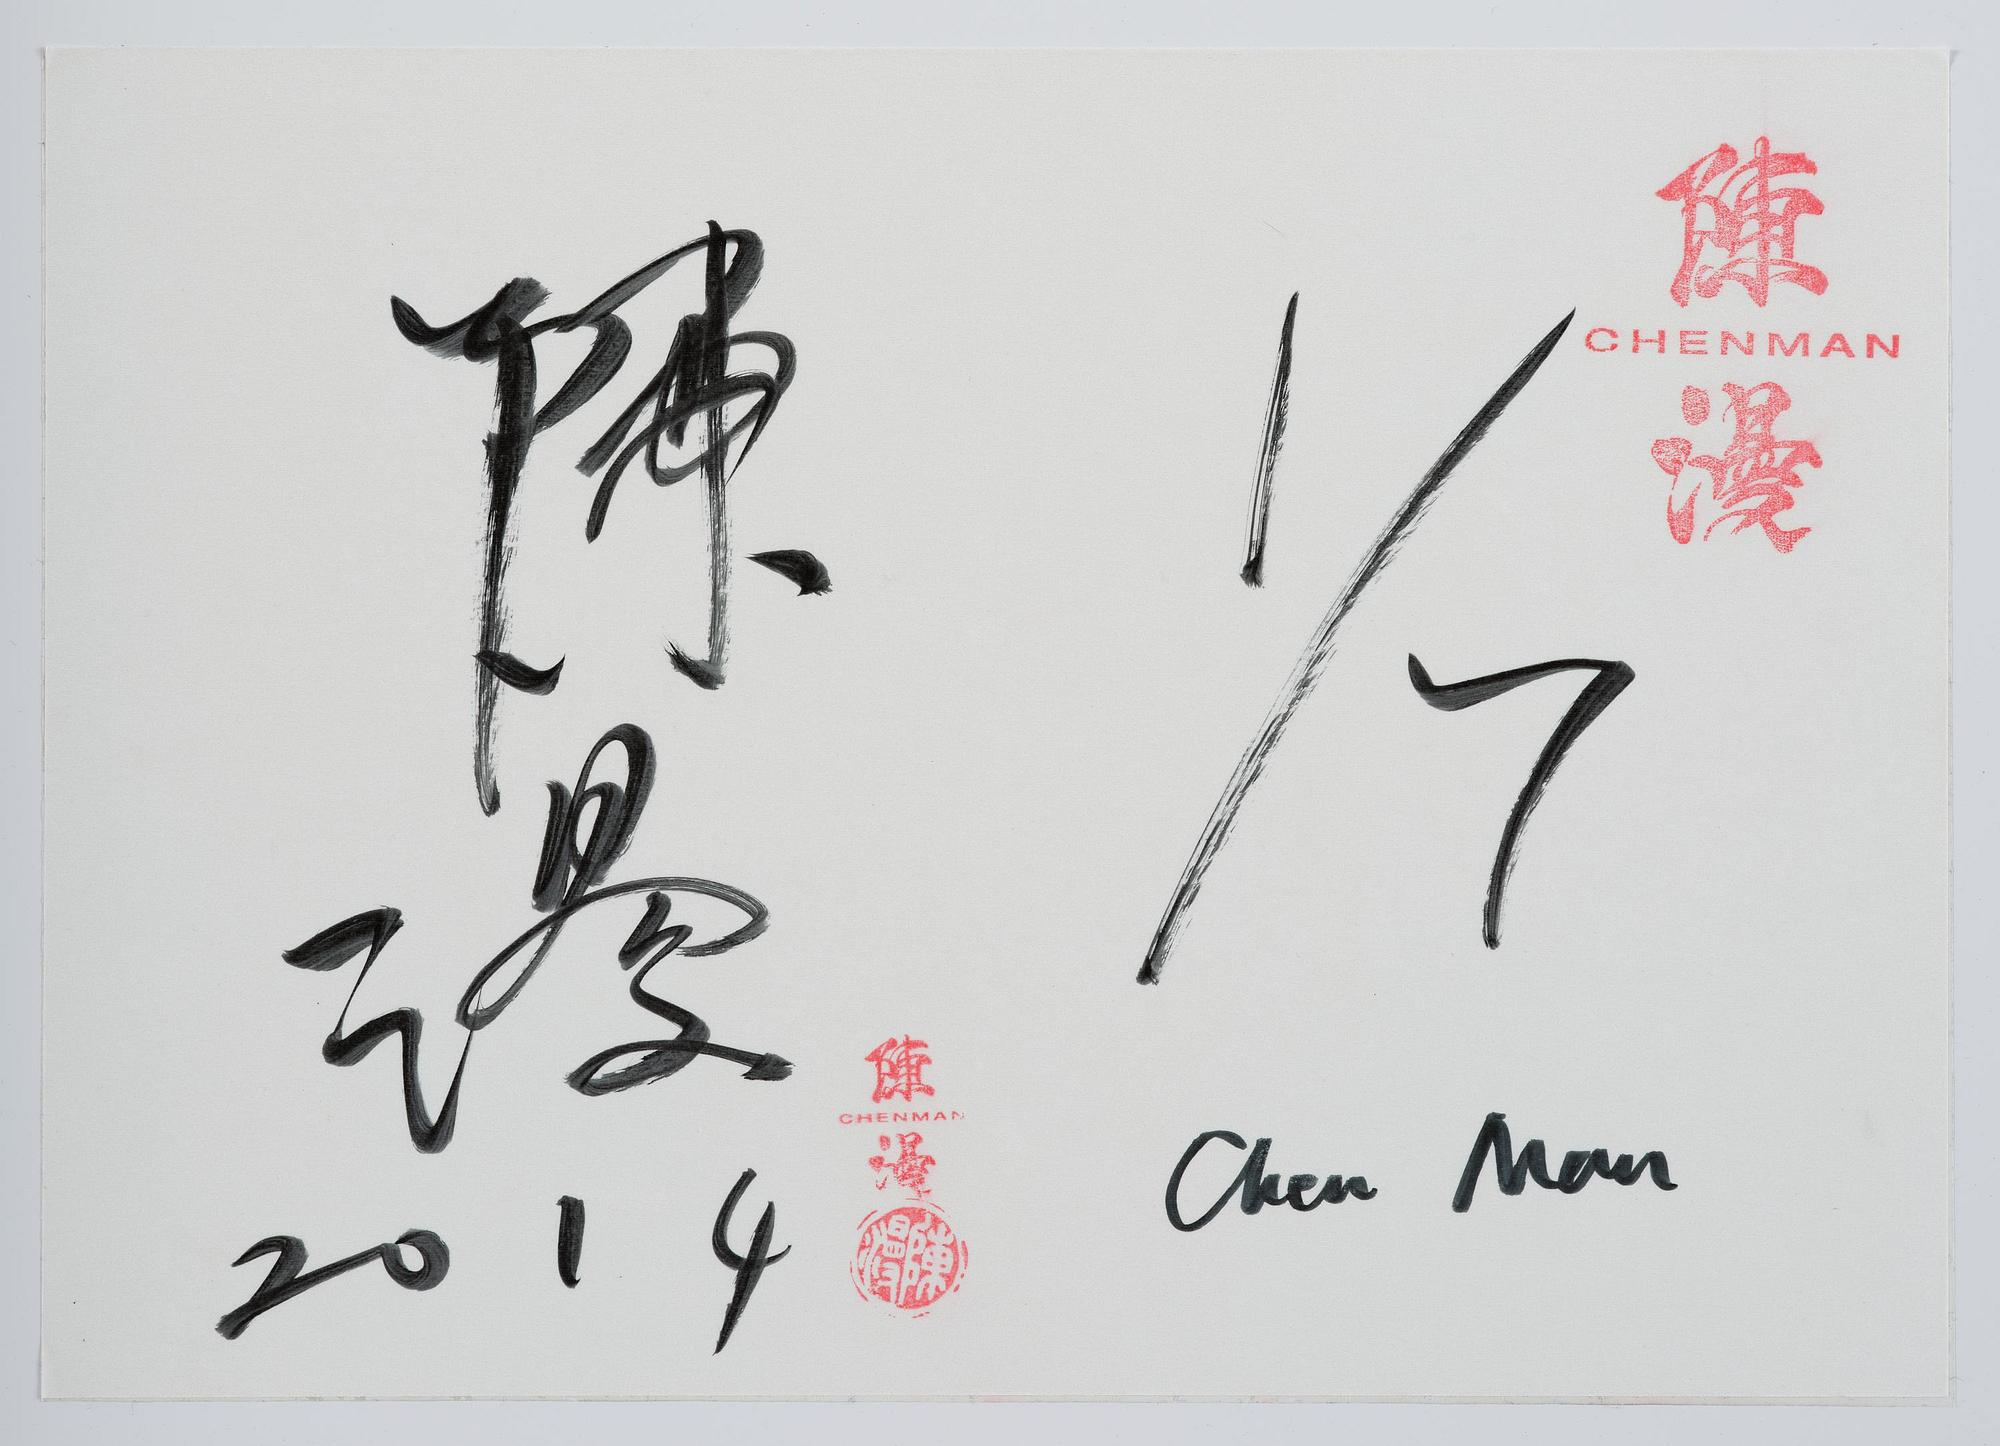 陳漫
2014
陳
CHENMAN
漫
陳漫
1/7
Chen Man
陳
CHENMAN
漫